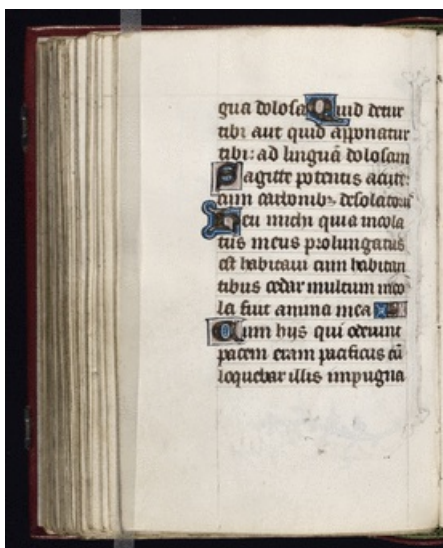 gua dolosa Quid detur
tibi aut quid apponatur
tibi: ad linguā dolosam
Sagitte potentis acute:
cum carbonib3 desolatoriis
Heu michi quia incola
tus meus prolungatus
est habitaui cum habitan
tibus cedar multum inco
la fuit anima mea
Cum hijs qui oderunt
pacem eram pacificus cū
loquebar illis impugna